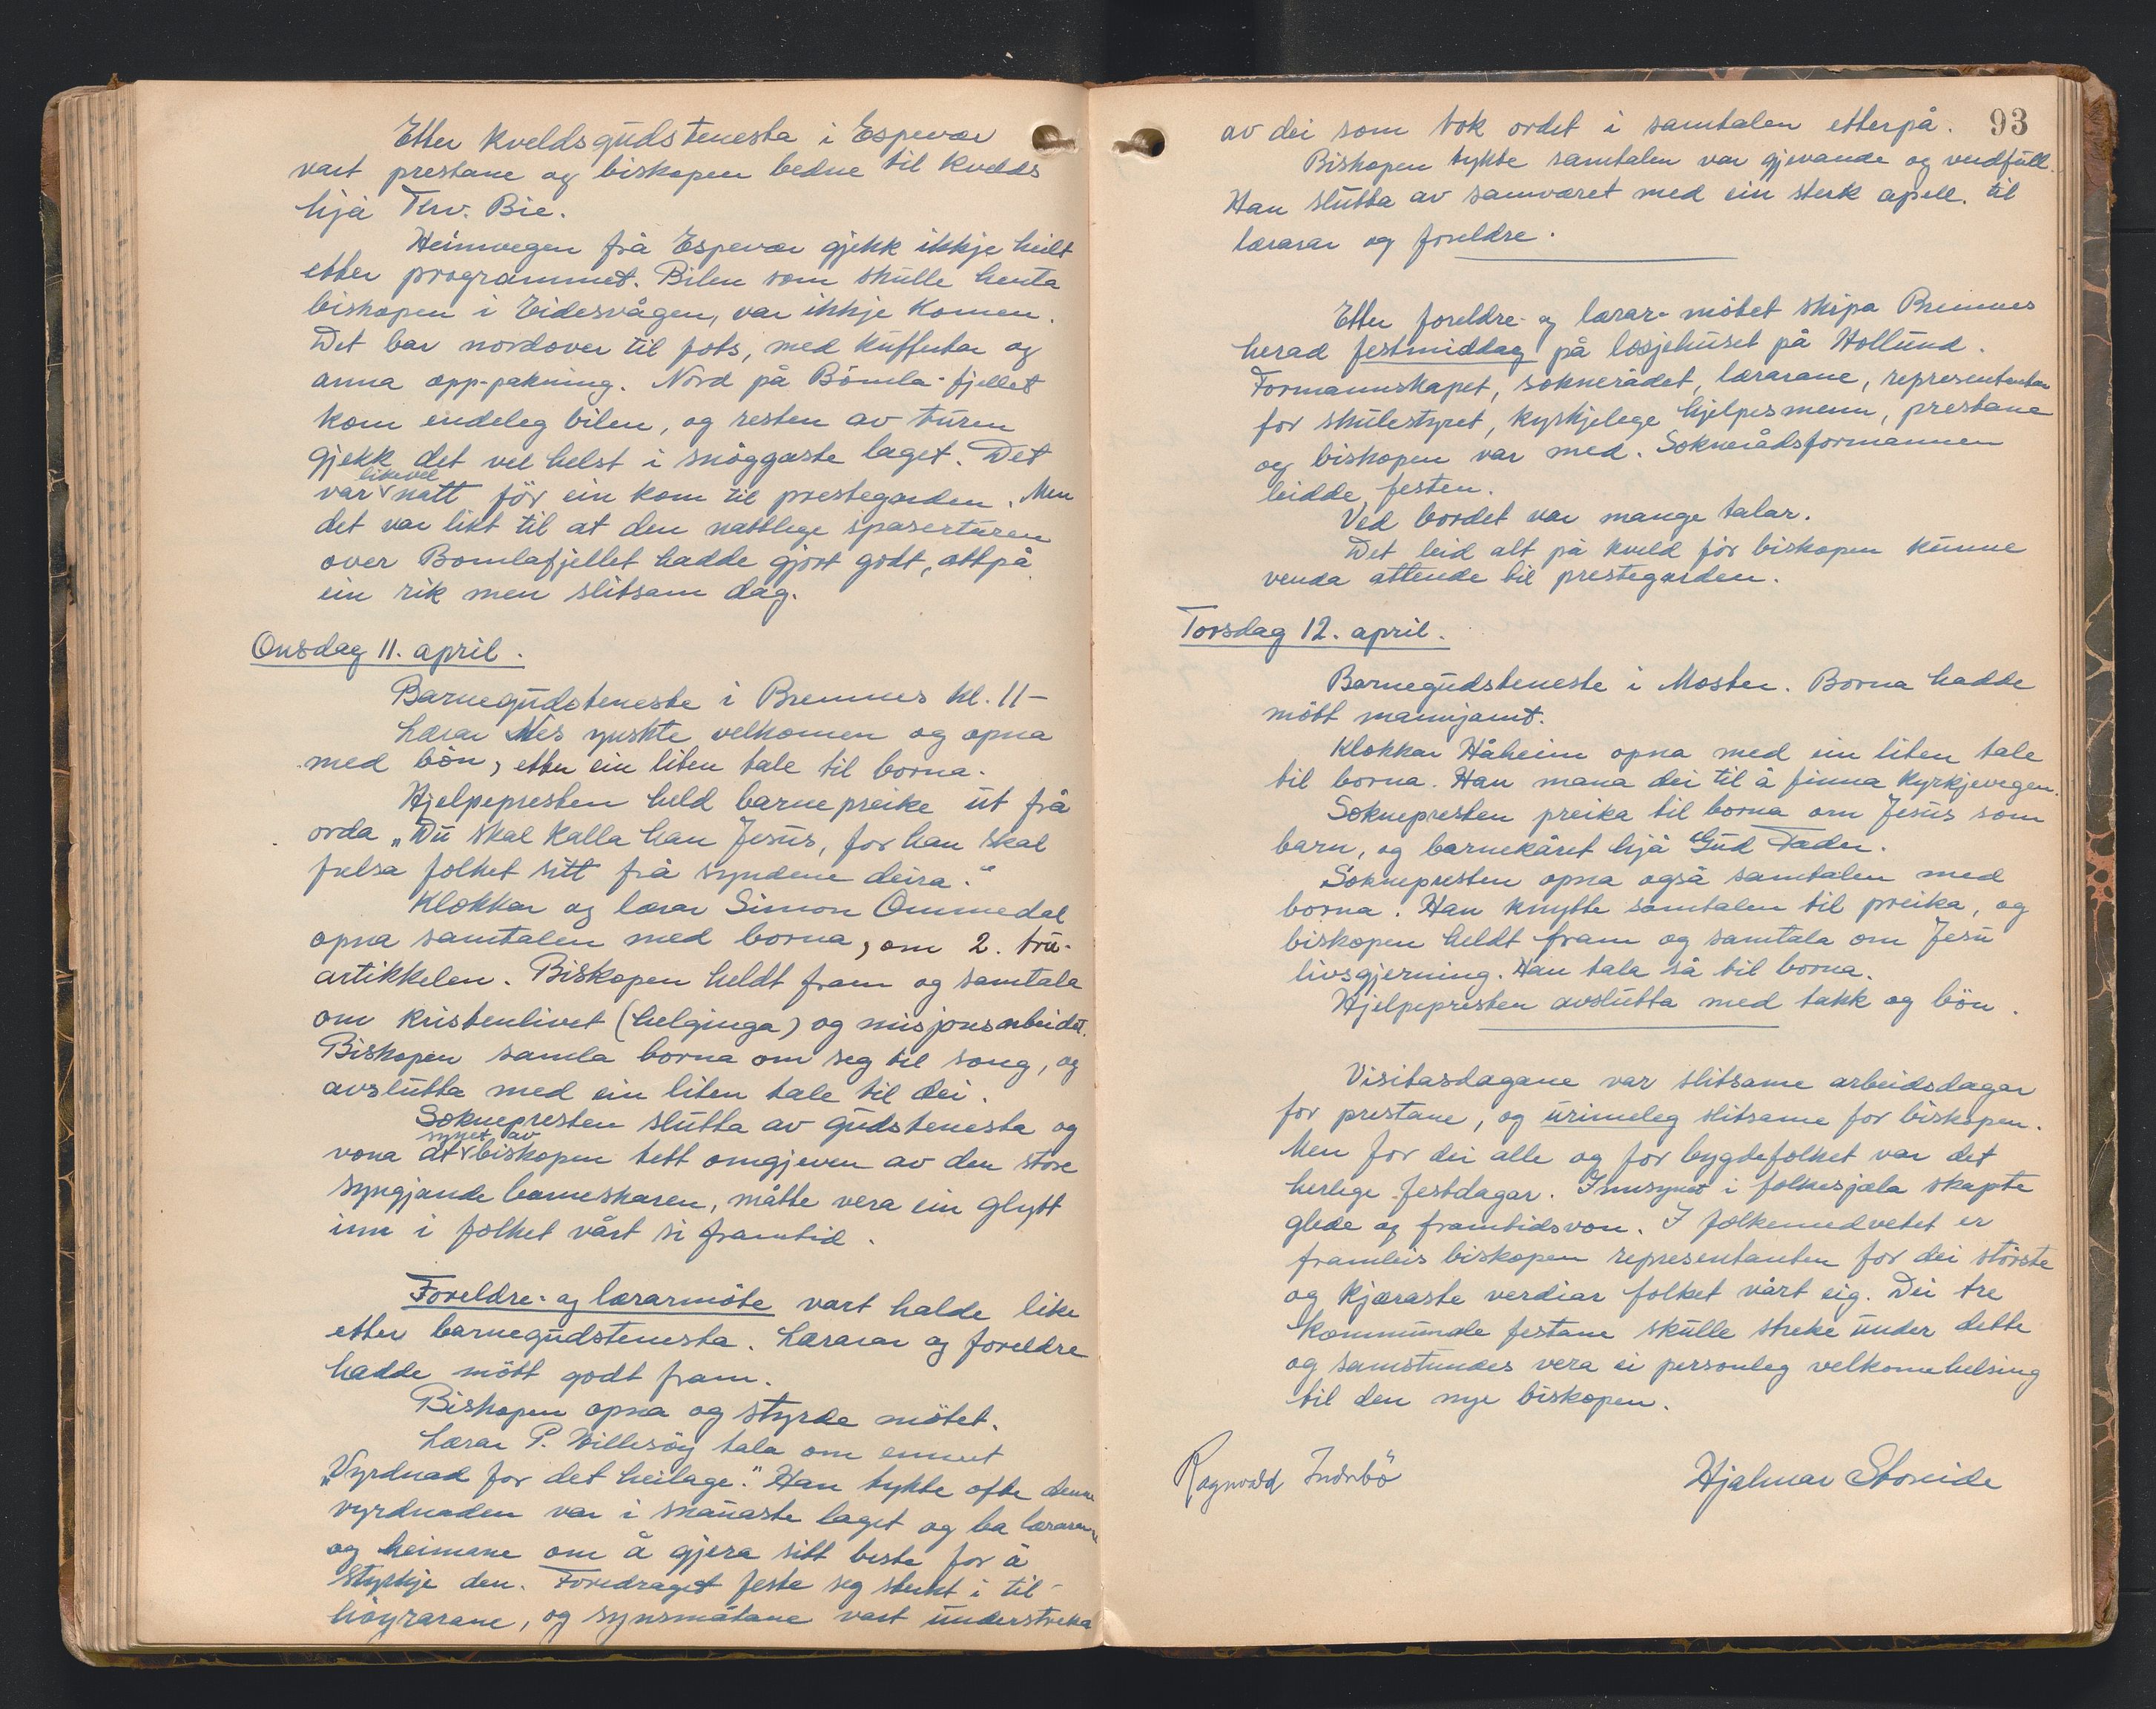 Etter kveldsgudstenesta i Espevær
vart prestane og biskopen bedne til kvelds
hjå Thv. Bie.
Heimvegen frå Espevær gjekk ikkje heilt
etter programmet. Bilen som skulle henta
biskopen i Eidesvågen, var ikkje komen.
Det bar nordover til fots, med kuffertar og
anna opp-pakning. Nord på Bömla-fjellet
kom endeleg bilen, og resten av turen
gjekk det vel helst i snöggaste laget. Det
var likevel natt för ein kom til prestegarden. Men
det var likt til at den nattlege spaserturen
over Bömlafjellet hadde gjort godt, attpå
ein rik men slitsam dag.
Onsdag 11. april.
Barnegudsteneste i Bremnes kl. 11-
Lærar Nes ynskte velkomen og opna
med bön, etter ein liten tale til borna.
Hjelpepresten held barnepreike ut frå
orda „Du skal kalla han Jesus, for han skal
frelsa folket sitt frå syndene deira."
Klokkar og lærar Simon Ommedal
opna samtalen med borna, om 2. tru-
artikkelen. Biskopen heldt fram og samtala
om kristenlivet (helginga) og misjonsarbeidet.
Biskopen samla borna om seg til song, og
avslutta med ein liten tale til dei.
Soknepresten slutta av gudstenesta og
vona at synet av biskopen tett omgjeven av den store
syngjande barneskaren, måtte vera ein glytt
inn i folket vårt si framtid.
Foreldre- og lærarmöte vart halde like
etter barnegudstenesta. Lærarar og foreldre
hadde mött godt fram.
Biskopen opna og styrde mötet.
Lærar P. Willesöy tala om emnet
„Vyrdnad for det heilage." Han tykte ofte denne
vyrdnaden var i snauaste laget og ba lærarane
og heimane om å gjera sitt beste for å
styrkje den. Foredraget feste seg sterkt i til-
höyrarane, og synsmåtane vart understreka
93
av dei som tok ordet i samtalen etterpå.
Biskopen tykte samtalen var gjevande og verdfull.
Han slutta av samværet med ein sterk apell. til
lærarar og foreldre.
Etter foreldre- og lærar-mötet skipa Bremnes
herad festmiddag på losjehuset på Hollund.
Formannskapet, soknerådet, lærarane, representantar
for skulestyret, kyrkjelege hjelpesmenn, prestane
og biskopen var med. Soknerådsformannen
leidde festen.
Ved bordet var mange talar.
Det leid alt på kveld för biskopen kunne
venda attende til prestegarden.
Torsdag 12. april.
Barnegudsteneste i Moster. Borna hadde
mött mannjamt.
Klokkar Håheim opna med ein liten tale
til borna. Han mana dei til å finna kyrkjevegen.
Soknepresten preika til borna om Jesus som
barn, og barnekåret hjå Gud Fader.
Soknepresten opna også samtalen med
borna. Han knytte samtalen til preika, og
biskopen heldt fram og samtala om Jesu
livsgjerning. Han tala så til borna.
Hjelpepresten avslutta med takk og bön.
Visitasdagane var slitsame arbeidsdagar
for prestane, og urimeleg slitsame for biskopen.
Men for dei alle og for bygdefolket var det
herlege festdagar. Innsynet i folkesjæla skapte
glede og framtidsvon. I folkemedvetet er
framleis biskopen representanten for dei störste
og kjæraste verdiar folket vårt eig. Dei tre
kommunale festane skulle streke under dette
og samstundes vera ei personleg velkomehelsing
til den nye biskopen.
Ragnvald Indrebö
Hjalmar Storeide